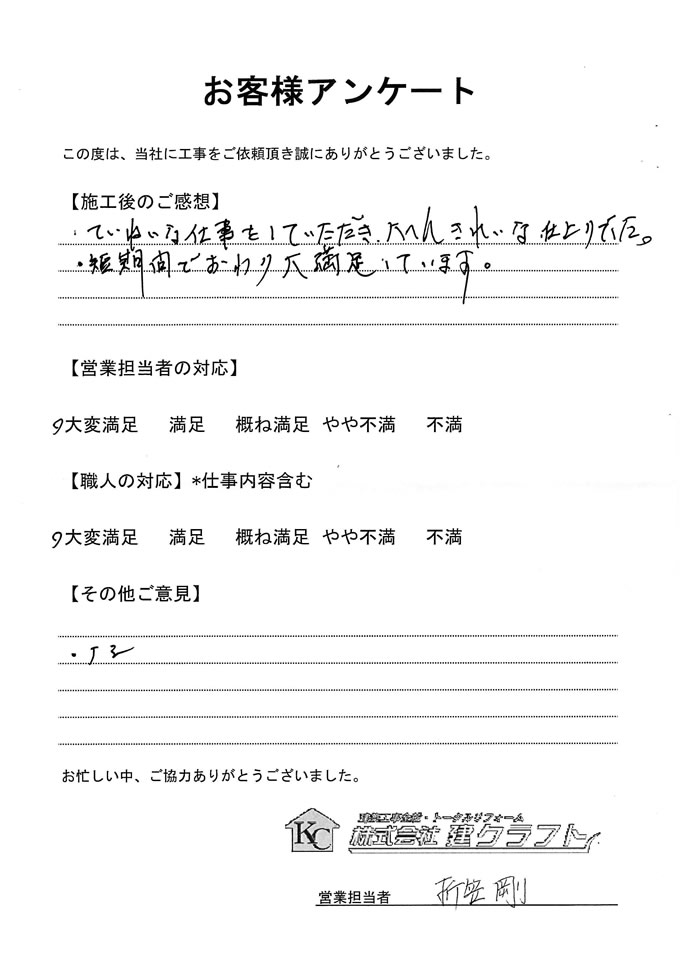 お客様アンケート
この度は、当社に工事をご依頼頂き誠にありがとうございました。
【施工後のご感想】
・ていねいな仕事をしていただき、大へんきれいな仕上りでした。
・短期間でおわり大満足しています。
【営業担当者の対応】
大変満足 満足 概ね満足 やや不満 不満
【職人の対応】*仕事内容含む
大変満足 満足 概ね満足 やや不満 不満
【その他ご意見】
お忙しい中、ご協力ありがとうございました。
KC
建築工事全般・トータルリフォーム
株式会社 建クラフト
営業担当者 折笠 剛